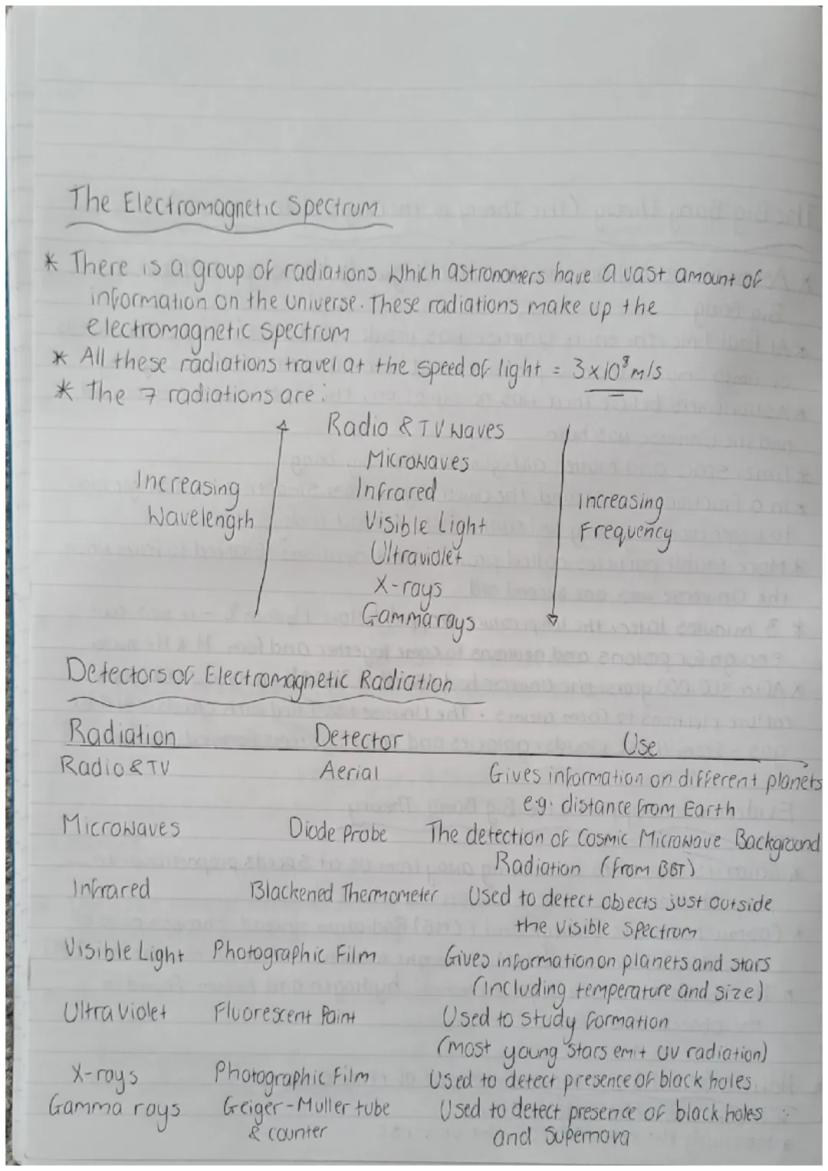 The Electromagnetic Spectrum
* There is a group of radiations which astronomers have a vast amount of
information on the universe. These radiations make up the
electromagnetic spectrum
* All these radiations travel at the speed of light = 3x10⁸ m/s
* The 7 radiations are:
Radio & TV Waves
Microwaves
Infrared
Visible Light
Ultraviolet
X-rays
Gamma rays
Increasing
Wavelength
Increasing
Frequency
Detectors of Electromagnetic Radiation
Radiation Detector Use
Radio & TV Aerial Gives information on different planets
e.g. distance from Earth
Microwaves Diode Probe The detection of Cosmic Microwave Background
Radiation (from BBT)
Infrared Blackened Thermometer Used to detect objects just outside
the visible spectrum
Visible Light Photographic Film Gives information on planets and stars
(including temperature and size)
Ultra Violet Fluorescent Paint Used to study formation
(most young stars emit UV radiation)
X-rays Photographic Film Used to detect presence of black holes
Gamma rays Geiger-Muller tube Used to detect presence of black holes
& counter and Supernova